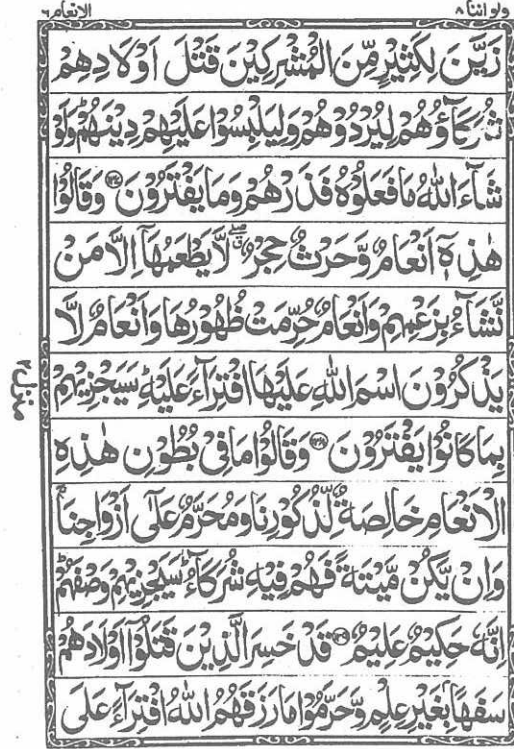 ولو اننا ۸
الانعام ٦
زَيَّنَ لِكَثِيْرٍ مِّنَ الْمُشْرِكِيْنَ قَتْلَ اَوْلَادِهِمْ
شُرَكَآؤُهُمْ لِيُرْدُوْهُمْ وَلِيَلْبِسُوْا عَلَيْهِمْ دِيْنَهُمْ ؕ وَلَوْ
شَآءَ اللّٰهُ مَا فَعَلُوْهُ فَذَرْهُمْ وَمَا يَفْتَرُوْنَ ﴿۱۳۷﴾ وَقَالُوْا
هٰذِهٖۤ اَنْعَامٌ وَّحَرْثٌ حِجْرٌ ۖ ق لَّا يَطْعَمُهَاۤ اِلَّا مَنْ
نَّشَآءُ بِزَعْمِهِمْ وَاَنْعَامٌ حُرِّمَتْ ظُهُوْرُهَا وَاَنْعَامٌ لَّا
يَذْكُرُوْنَ اسْمَ اللّٰهِ عَلَيْهَا افْتِرَآءً عَلَيْهِ ؕ سَيَجْزِيْهِمْ
بِمَا كَانُوْا يَفْتَرُوْنَ ﴿۱۳۸﴾ وَقَالُوْا مَا فِيْ بُطُوْنِ هٰذِهِ
الْاَنْعَامِ خَالِصَةٌ لِّذُكُوْرِنَا وَمُحَرَّمٌ عَلٰۤى اَزْوَاجِنَا ۚ
وَاِنْ يَّكُنْ مَّيْتَةً فَهُمْ فِيْهِ شُرَكَآءُ ؕ سَيَجْزِيْهِمْ وَصْفَهُمْ ؕ
اِنَّهٗ حَكِيْمٌ عَلِيْمٌ ﴿۱۳۹﴾ قَدْ خَسِرَ الَّذِيْنَ قَتَلُوْۤا اَوْلَادَهُمْ
سَفَهًاۢ بِغَيْرِ عِلْمٍ وَّحَرَّمُوْا مَا رَزَقَهُمُ اللّٰهُ افْتِرَآءً عَلَى
منزل ۲